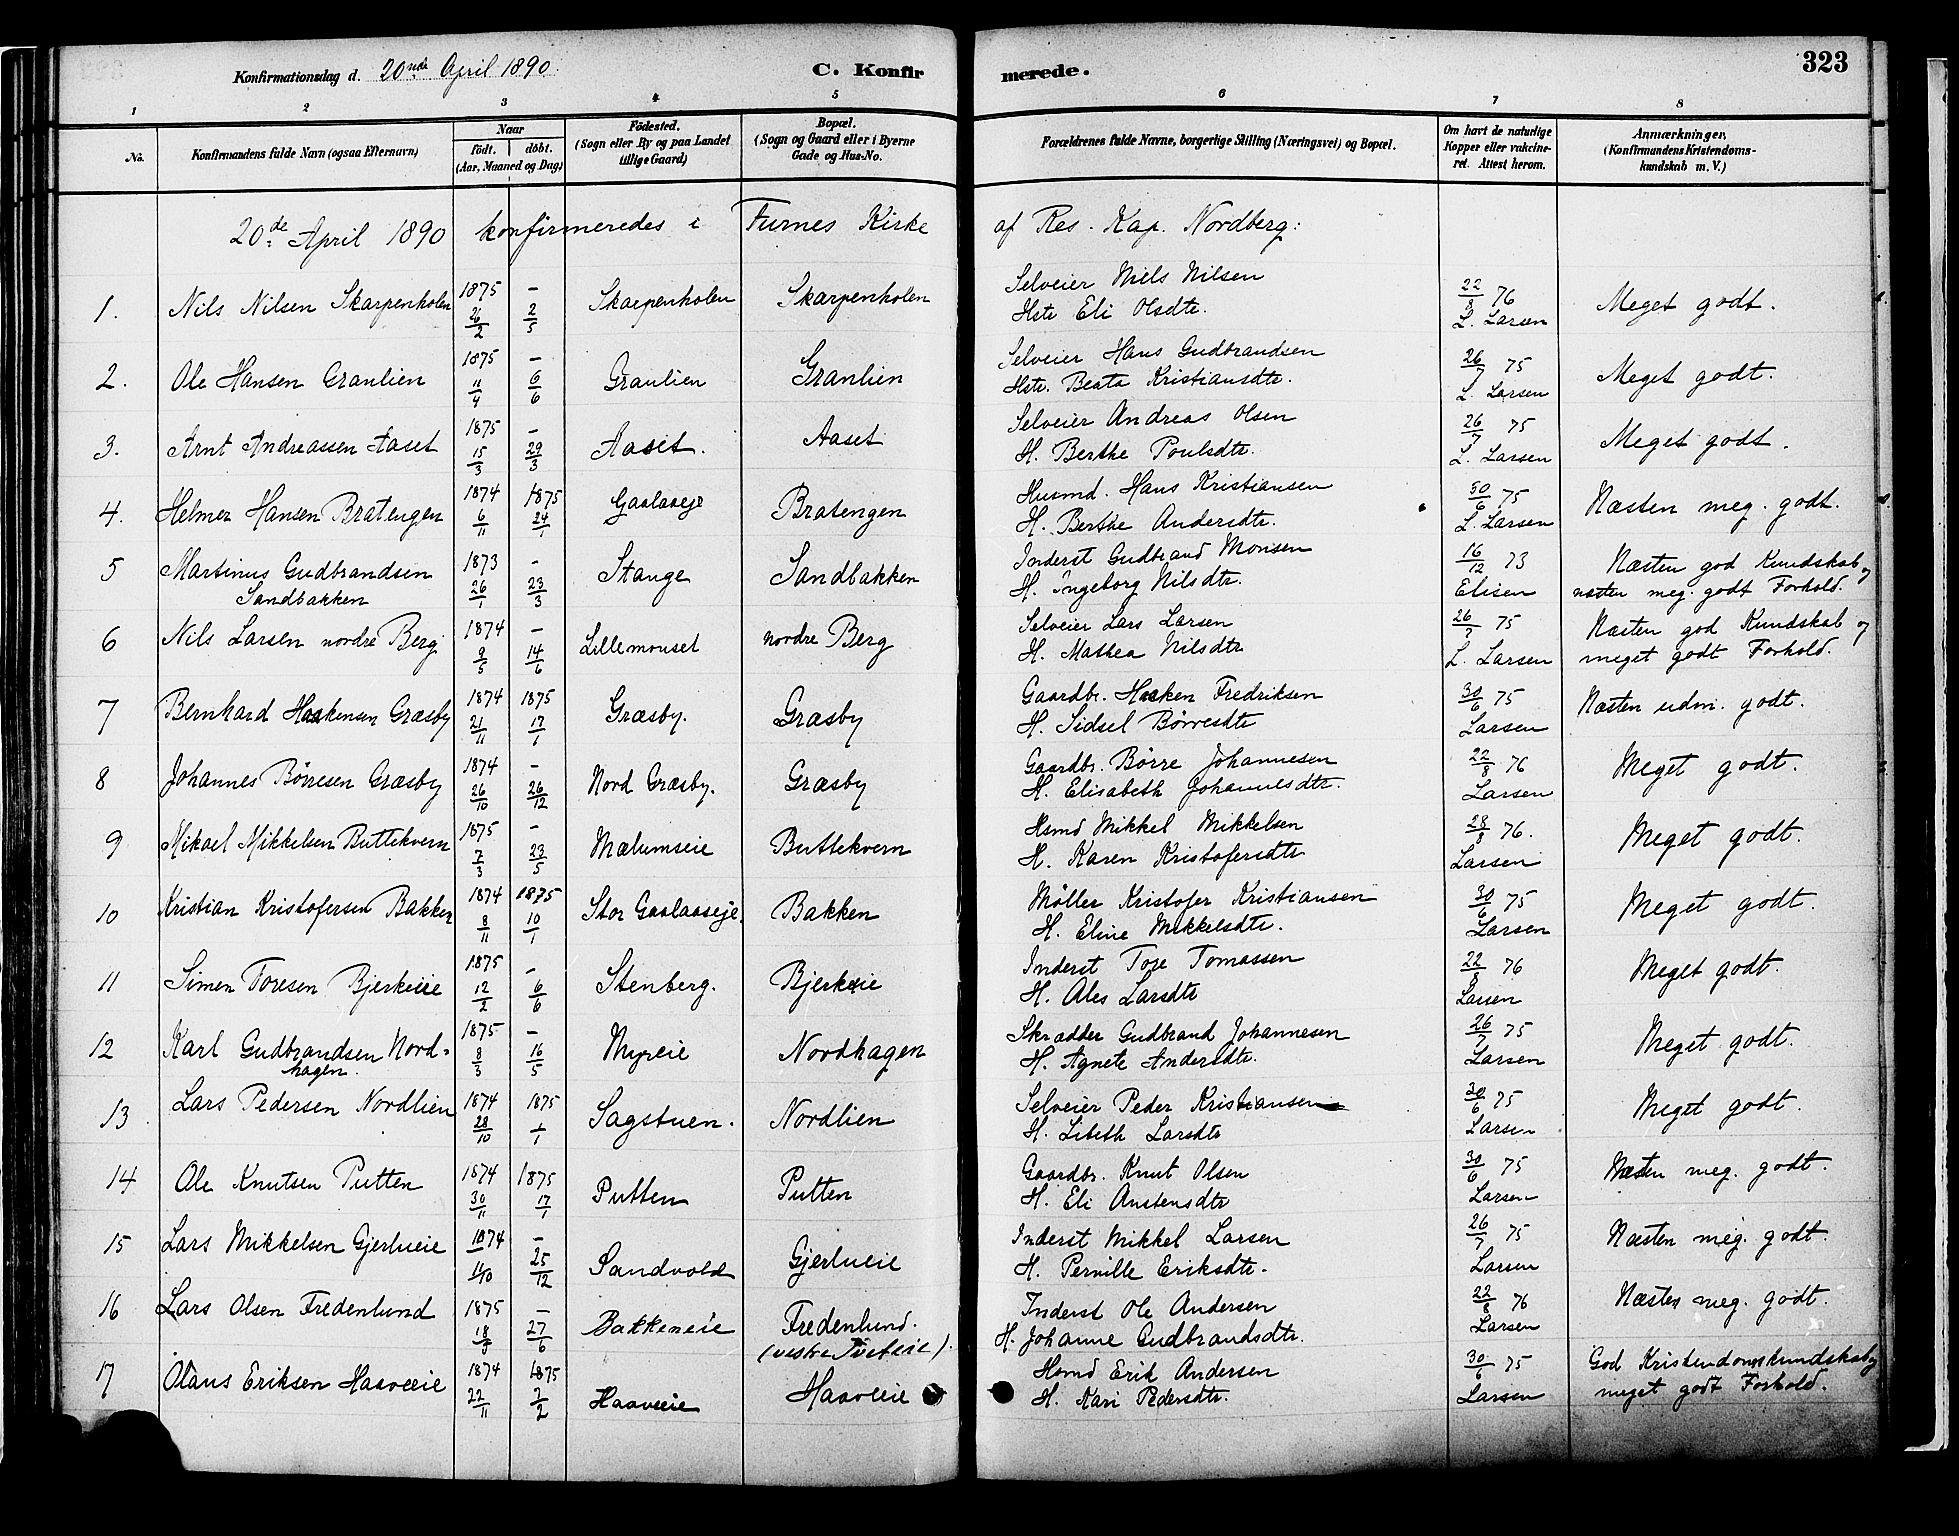 323
Konfirmationsdag d. 20nde April 1890
C. Konfirmerede.
1 2 3 4 5 6 7 8
No. Konfirmandens fulde Navn (ogsaa Efternavn) Naar født. døbt. (Aar, Maaned og Dag) Födested. (Sogn eller By og paa Landet tillige Gaard) Bopæl. (Sogn og Gaard eller i Byerne Gade og Hus-No. Forældrenes fulde Navne, borgerlige Stilling (Næringsvei) og Bopæl. Om havt de naturlige Kopper eller vakcineret. Attest herom. Anmærkninger, (Konfirmandens Kristendomskundskab m. V.)
20de April 1890 konfirmeredes i Furnes Kirke af Res. Kap. Nordberg:
1. Nils Nilsen Skarpenholen 1875 26/2 – 2/5 Skarpenholen Skarpenholen Selveier Niels Nilsen
Hstr Eli Olsdtr. 22/8 76 L. Larsen Meget godt.
2. Ole Hansen Granlien 1875 11/4 – 6/6 Granlien Granlien Selveier Hans Gudbrandsen
Hstr. Beata Kristiansdtr. 26/7 75 L. Larsen Meget godt.
3. Arnt Andreassen Aaset 1875 15/3 – 29/3 Aaset. Aaset Selveier Andreas Olsen
H. Berthe Poulsdtr. 26/7 75 L. Larsen Meget godt.
4. Helmer Hansen Bratengen 1874 6/11 1875 24/1 Gaalaaseje Bratengen Husmd. Hans Kristiansen
H. Berthe Andersdtr. 30/6 75 L. Larsen Næsten meg. godt.
5 Martinus Gudbrandsen Sandbakken 1873 26/1 – 23/3 Stange Sandbakken Inderst Gudbrand Monsen
H. Ingeborg Nilsdtr. 16/12 73 Elisen Næsten god Kundskab og
næsten meg. godt Forhold.
6 Nils Larsen nordre Berg 1874 9/5 – 14/6 Lillemonset nordre Berg Selveier Lars Larsen
H. Mathea Nilsdtr. 26/7 75 L. Larsen Næsten god Kundskab og
meget godt Forhold.
7 Bernhard Haakensen Græsby 1874 21/11 1875 17/1 Græsby. Græsby Gaardbr. Haaken Fredriksen
H. Sidsel Børresdtr 30/6 75 Larsen Næsten udm. godt.
8 Johannes Børresen Græsby 1874 26/10 – 26/12 Nord Græsby. Græsby Gaardbr. Børre Johannesen
H. Elisabeth Johannesdtr. 22/8 76 Larsen Meget godt.
9 Mikael Mikkelsen Buttekvern 1875 7/3 – 23/5 Mælumseie Buttekvern Hsmd Mikkel Mikkelsen
H. Karen Kristofersdtr 28/8 76. Larsen Meget godt.
10 Kristian Kristofersen Bakken 1874 8/11 1875 10/1 Stor Gaalaaseje. Bakken Møller Kristofer Kristiansen
H. Eline Mikkelsdtr. 30/6 75 Larsen Meget godt.
11 Simen Toresen Bjerkeie 1875 12/2 – 6/6 Stenberg. Bjerkeie Inderst Tore Tomassen
H. Ales Larsdtr 22/8 76 Larsen Meget godt.
12 Karl Gudbrandsen Nord-
hagen. 1875 8/3 – 16/5 Myreie Nordhagen Skrædder Gudbrand Johannesen
H. Agnete Andersdtr. 26/7 75 Larsen Meget godt.
13. Lars Pedersen Nordlien 1874 28/10 1875 1/1 Sagstuen. Nordlien Selveier Peder Kristiansen
H. Libeth Larsdtr 30/6 75 Larsen Meget godt.
14 Ole Knutsen Putten 1874 30/11 1875 17/1 Putten Putten Gaardbr. Knut Olsen
H. Eli Austensdtr 30/6 75 Larsen Næsten meg. godt.
15 Lars Mikkelsen Gjerlueie 1874 11/10 – 25/12 Sandvold Gjerlueie Inderst Mikkel Larsen
H. Pernille Eriksdtr. 26/7 75 Larsen Næsten meg. godt.
16 Lars Olsen Fredenlund 1875 – 27/6 Bakkeneie Fredenlund.
(vestre Tveteie). Inderst Ole Andersen
H. Johanne Gudbrandsdtr. 22/8 76 Larsen Næsten meg. godt.
17 Olaus Eriksen Haaveeie 1874 22/11 1875 2/2 Haaveeie Haaveeie Hsmd Erik Andersen
H. Kari Pedersdtr. 30/6 75 Larsen God Kristendomskundskab og
meget godt Forhold.